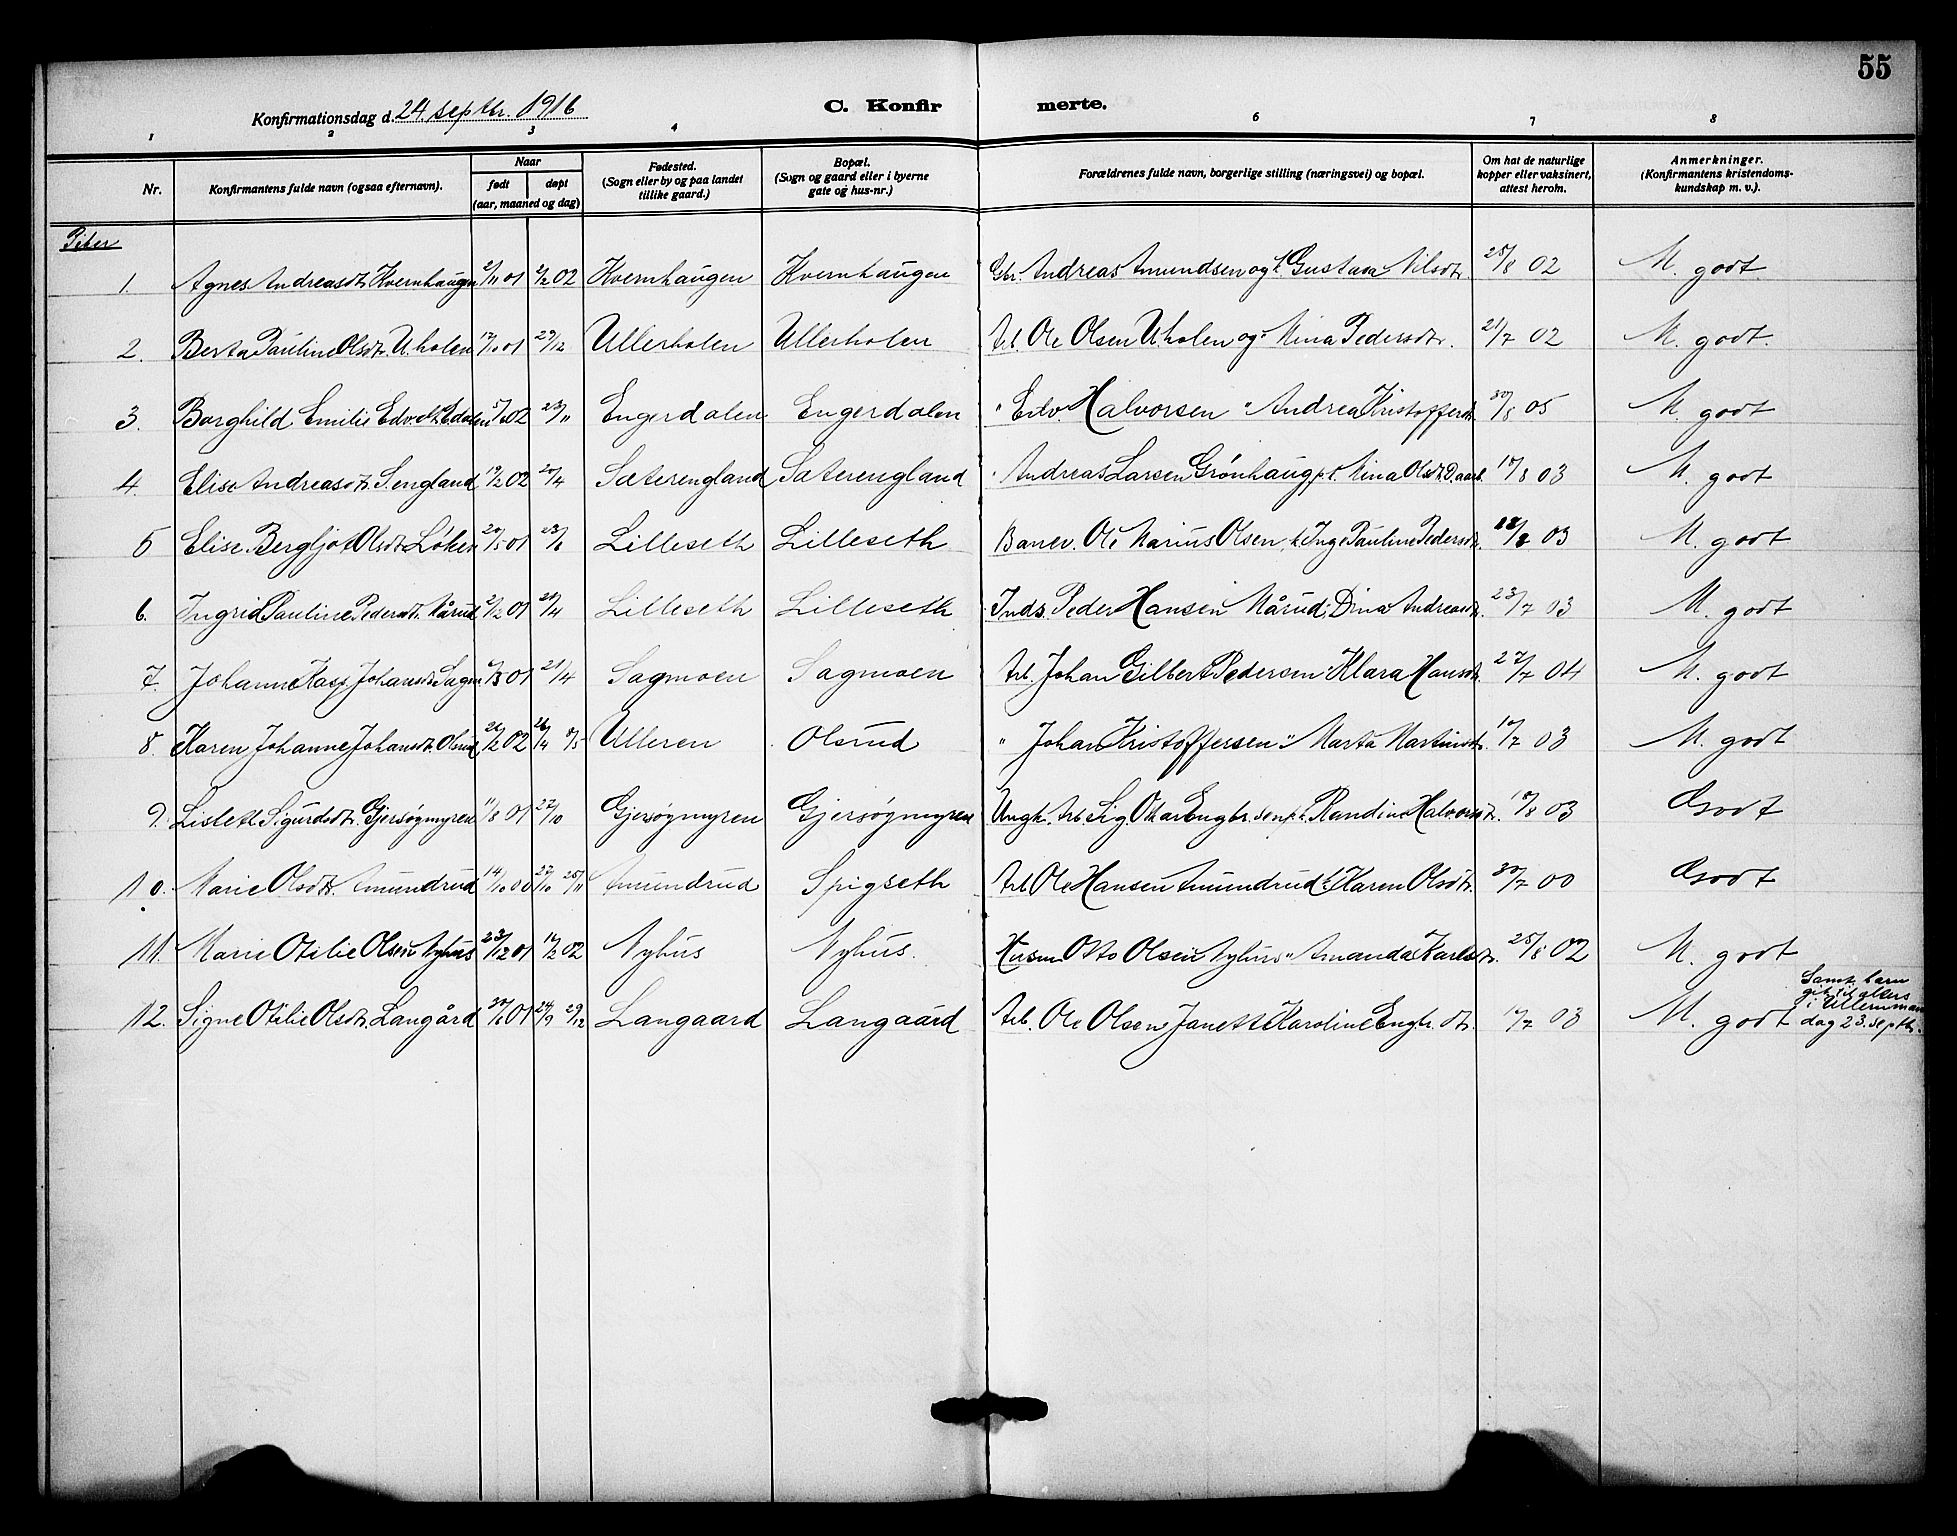 55
Konfirmationsdag d. 24. septbr. 1916 C. Konfir merte.
1 2 3 4 6 7 8
Nr. Konfirmantens fulde navn (ogsaa efternavn). Naar født døpt (aar, maaned og dag) Fødested. (Sogn eller by og paa landet tillike gaard.) Bopæl. (Sogn og gaard eller i byerne gate og hus-nr.) Forældrenes fulde navn, borgerlige stilling (næringsvei) og bopæl. Om hat de naturlige kopper eller vaksinert, attest herom. Anmerkninger. (Konfirmantens kristendoms-kundskap m. v.).
Piker
1. Agnes Andreasdtr. Kvernhaugen 2/11 01 2/2 02 Kvernhaugen Kvernhaugen Gbr. Andreas Amundsen og k. Gustava Nilsdtr. 25/8 02 M. godt
2. Berta Pauline Olsdtr. U.holen 17/10 01 29/12 Ullerholen Ullerholen Arb. Ole Olsen U.holen og " Mina Pedersdtr. 21/7 02 M. godt.
3. Borghild Emilie Edv.dtr. E.dalen 02 23/11 Engerdalen Engerdalen " Edv. Halvorsen " Andrea Kristoffersdtr. 30/8 05 M. godt
4. Elise Andreasdtr. S.england 19/2 02 20/4 Sæterengland Sæterengland " Andreas Larsen Grønhaug Mina Olsdtr. 17/8 03 M. godt
5 Elise Bergljot Olsdtr. Løken 20/5 01 23/6 Lilleseth Lilleseth Banev. Ole Marius Olsen, k. Inge Pauline Pedersdtr. 03 M. godt
6. Ingrid Pauline Pedersdtr. Mårud 2/12 01 20/4 Lilleseth Lilleseth Inds. Peder Hansen Mårud, Dina Andreasdtr. 23/7 03 M. godt
7. Johanne Kasp. Johansdtr. Sagm 01 21/4 Sagmoen Sagmoen Arb. Johan Gilbert Pedersen " Klara Hansdtr. 27/7 04 M. godt
8. Karen Johanne Johansdtr. Olsrud 21/2 02 26/4 8/5 Ulleren Olsrud " Johan Kristoffersen " Marta Martinsdtr. 17/7 03 M. godt
9. Lislett Sigurdsdtr. Gjersøgmyren 11/8 01 27/10 Gjersøgmyren Gjersøgmyren Ungk. Arb. Sig. Oskar Engbr.sen Randine Halvorsdtr. 17/8 03 Godt
10. Marie Olsdtr. Amundrud 14/10 00 27/10 25/11 Amundrud Spigseth Arb. Ole Hansen Amundrud k. Karen Olsdtr. 30/7 00 Godt
11. Marie Otilie Olsen Nyhus 23/12 01 14/2 02 Nyhus Nyhus. Husm. Otto Olsen Nyhus " Amanda Karlsdtr. 25/8 02 M. godt
12. Signe Otilie Olsdtr. Langård 30/6 01 24/9 29/12 Langaard Langaard Arb. Ole Olsen, Janette Karoline Engbr.dtr. 17/7 03 M. godt
Samt. barn
gik til alters
i Ulleren man
dag 23. septbr.